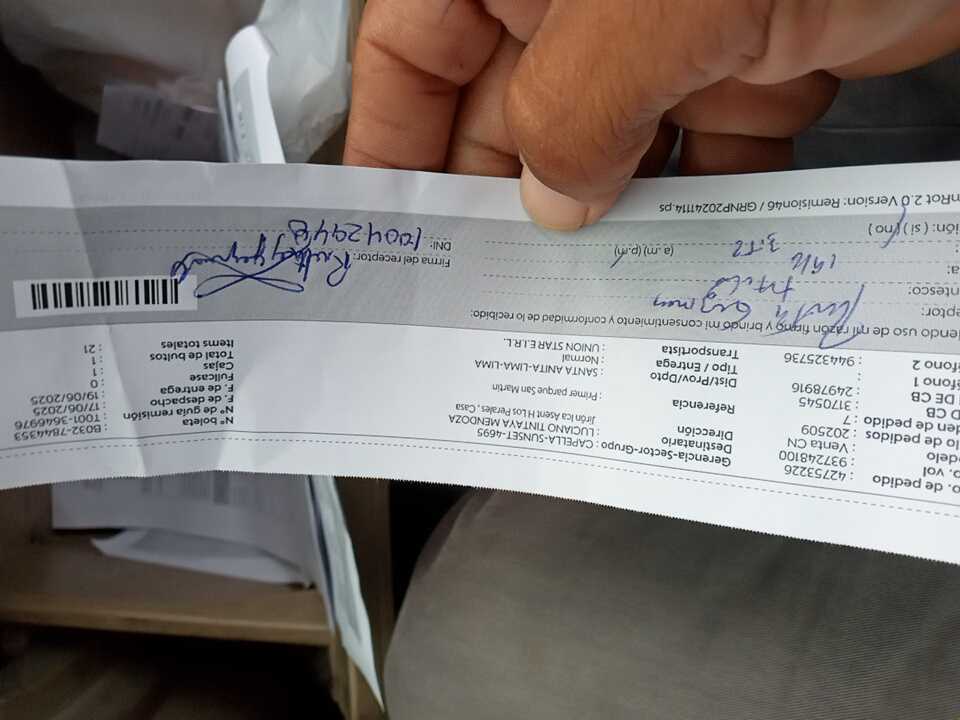 o. de pedido : 42753226
o. vol : 937248100
delo : Venta CN
lo de pedidos : 202509
den de pedido : 7
D CB : 3170545
DE CB : 24978916
éfono 1 :
éfono 2 : 944325736
Gerencia-Sector-Grupo : CAPELLA-SUNSET-4695
Destinatario : LUCIANO TINTAYA MENDOZA
Dirección : Jirón Ica Asent H Los Perales , Casa
Referencia Primer parque San Martin
Dist/Prov/Dpto : SANTA ANITA-LIMA-LIMA
Tipo / Entrega : Normal
Transportista : UNION STAR E.I.R.L.
N° boleta : B032-7844353
N° de guía remisión : T001-3646976
F. de despacho : 17/06/2025
F. de entrega : 19/06/2025
Fullcase : 0
Cajas : 1
Total de bultos : 1
Items totales : 21
endo uso de mi razón firmo y brindo mi consentimiento y conformidad de lo recibido:
eptor:
ntesco:
a: 19/6
: 3:52 (a.m) (p.m)
ión: ( si ) ( no )
Firma del receptor:
DNI:
nRot 2.0 Version: Remision46 / GRNP20241114.ps